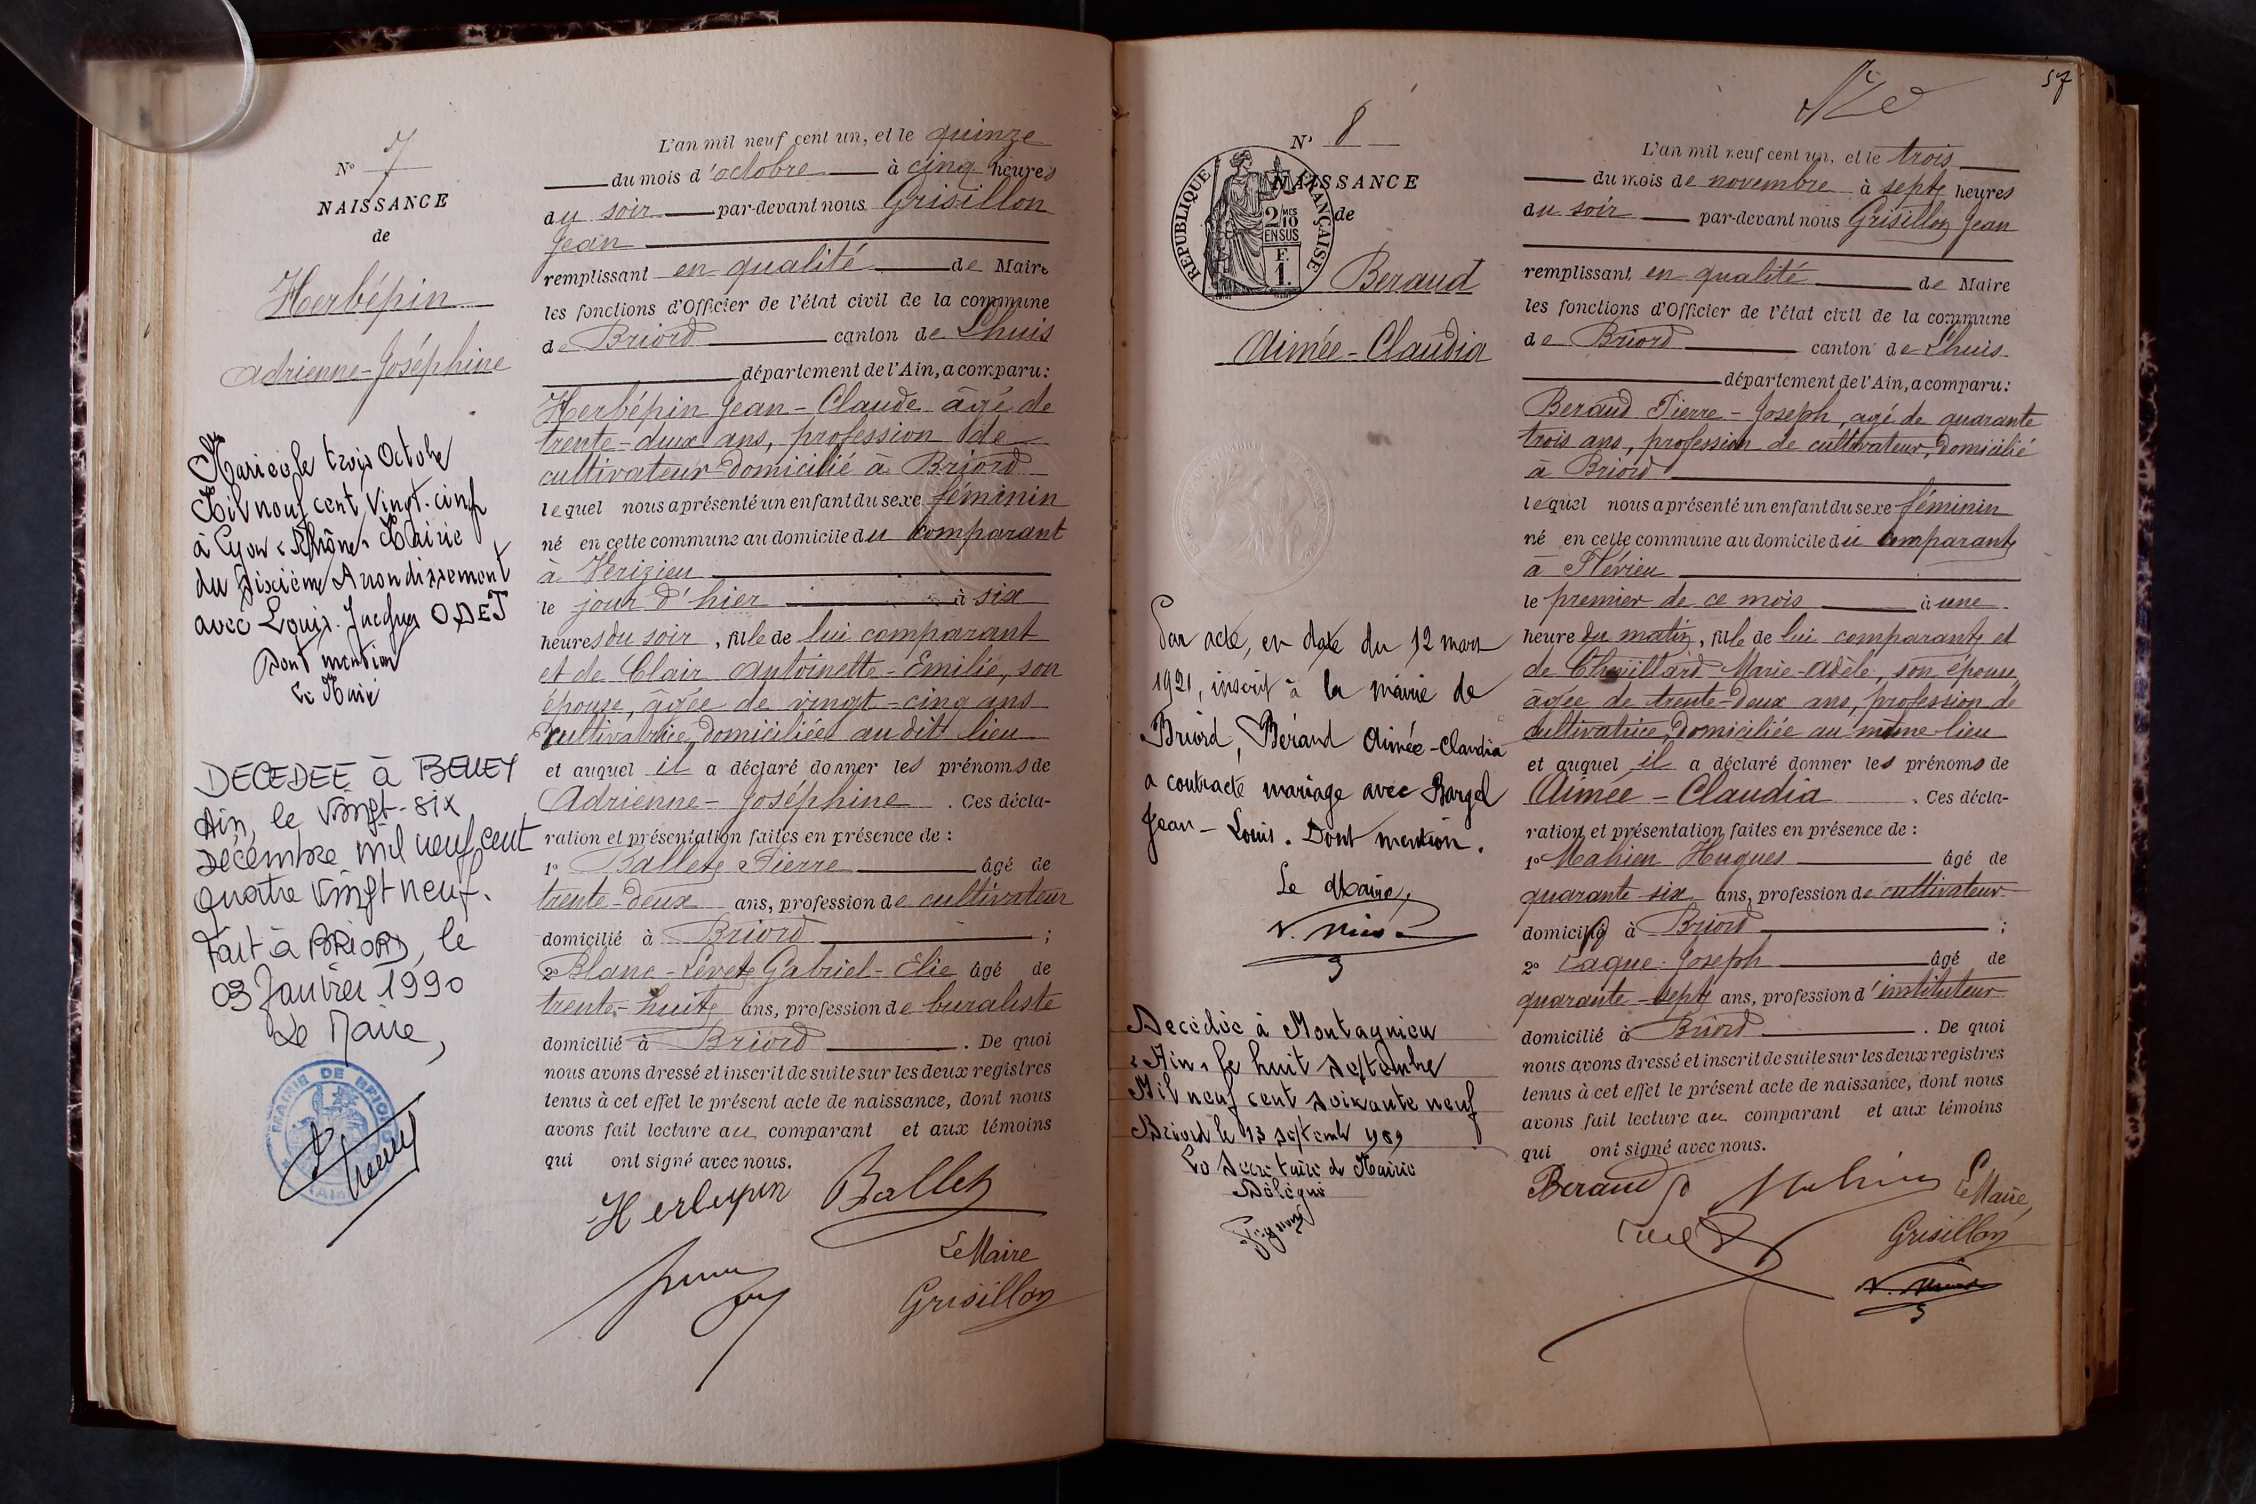 N° 7
NAISSANCE
de
Herbépin
Adrienne-Joséphine
Mariée le trois Octobre
Mil neuf cent Vingt-cinq
à Lyon "Rhône" Mairie
du Sixième Arrondissement
avec Louis-Jacques ODET
Dont mention
Le Maire
DECEDEE à BELLEY
Ain, le Vingt-six
Décembre mil neuf cent
quatre vingt neuf.
Fait à BRIORD, le
03 Janvier 1990
Le Maire,
MAIRIE DE BRIORD
(AIN)
L'an mil neuf cent un, et le quinze
du mois d'octobre à cinq heures
du soir par-devant nous Grisillon
Jean
remplissant en qualité de Maire
les fonctions d'Officier de l'état civil de la commune
de Briord canton de Lhuis
département de l'Ain, a comparu:
Herbépin Jean-Claude âgé de
trente-deux ans, profession de
cultivateur domicilié à Briord
lequel nous a présenté un enfant du sexe féminin
né en cette commune au domicile du comparant
à Vérizieu
le jour d'hier à six
heures du soir, fille de lui comparant
et de Clair Antoinette-Emilie, son
épouse, âgée de vingt-cinq ans
cultivatrice, domiciliée au dit lieu
et auquel il a déclaré donner les prénoms de
Adrienne-Joséphine. Ces décla-
ration et présentation faites en présence de :
1° Ballet Pierre âgé de
trente-deux ans, profession de cultivateur
domicilié à Briord ;
2° Blanc-Levet Gabriel-Elie âgé de
trente-huit ans, profession de buraliste
domicilié à Briord. De quoi
nous avons dressé et inscrit de suite sur les deux registres
tenus à cet effet le présent acte de naissance, dont nous
avons fait lecture au comparant et aux témoins
qui ont signé avec nous.
Herbepin Ballet
Le Maire
Grisillon
57
N° 8
NAISSANCE
de
REPUBLIQUE FRANÇAISE
2/10 MES
EN SUS
F.
1.
Beraud
Aimée-Claudia
Par acte, en date du 12 mars
1921, inscrit à la mairie de
Briord, Béraud Aimée-Claudia
a contracté mariage avec Bargel
Jean-Louis. Dont mention.
Le Maire,
Décédée à Montagnieu
"Ain" le huit septembre
Mil neuf cent soixante neuf
Briord le 13 septembre 1969
Le Secrétaire de Mairie
Délégué
L'an mil neuf cent un, et le trois
du mois de novembre à sept heures
du soir par-devant nous Grisillon Jean
remplissant en qualité de Maire
les fonctions d'Officier de l'état civil de la commune
de Briord canton de Lhuis
département de l'Ain, a comparu:
Beraud Pierre-Joseph, agé de quarante
trois ans, profession de cultivateur, domicilié
à Briord
lequel nous a présenté un enfant du sexe féminin
né en cette commune au domicile du comparant
à Flévieu
le premier de ce mois à une
heure du matin, fille de lui comparant et
de Marie-Adèle, son épouse
âgée de trente-deux ans, profession de
cultivatrice, domiciliée au même lieu
et auquel il a déclaré donner les prénoms de
Aimée-Claudia. Ces décla-
ration et présentation faites en présence de :
1° Mahieu Hugues âgé de
quarante six ans, profession de cultivateur
domicilié à Briord ;
2° Joseph âgé de
quarante-sept ans, profession d'instituteur
domicilié à Briord. De quoi
nous avons dressé et inscrit de suite sur les deux registres
tenus à cet effet le présent acte de naissance, dont nous
avons fait lecture au comparant et aux témoins
qui ont signé avec nous.
Beraud Mahieu Le Maire,
Grisillon